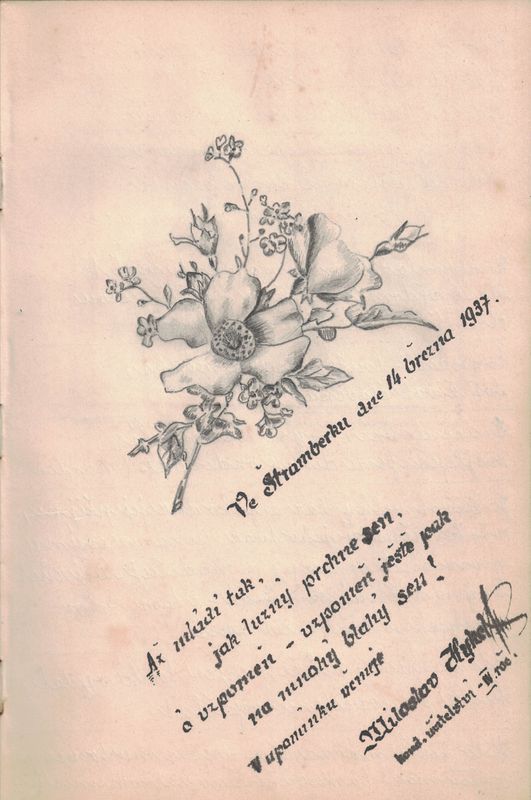 Ve Štramberku dne 14. března 1937.
Až mládí tak,
jak luzný prchne sen,
ó vzpomeň - vzpomeň ještě pak
na mnohý blahý sen!
V upomínku věnuje
Miloslav
kand. učitelství - IV. roč.